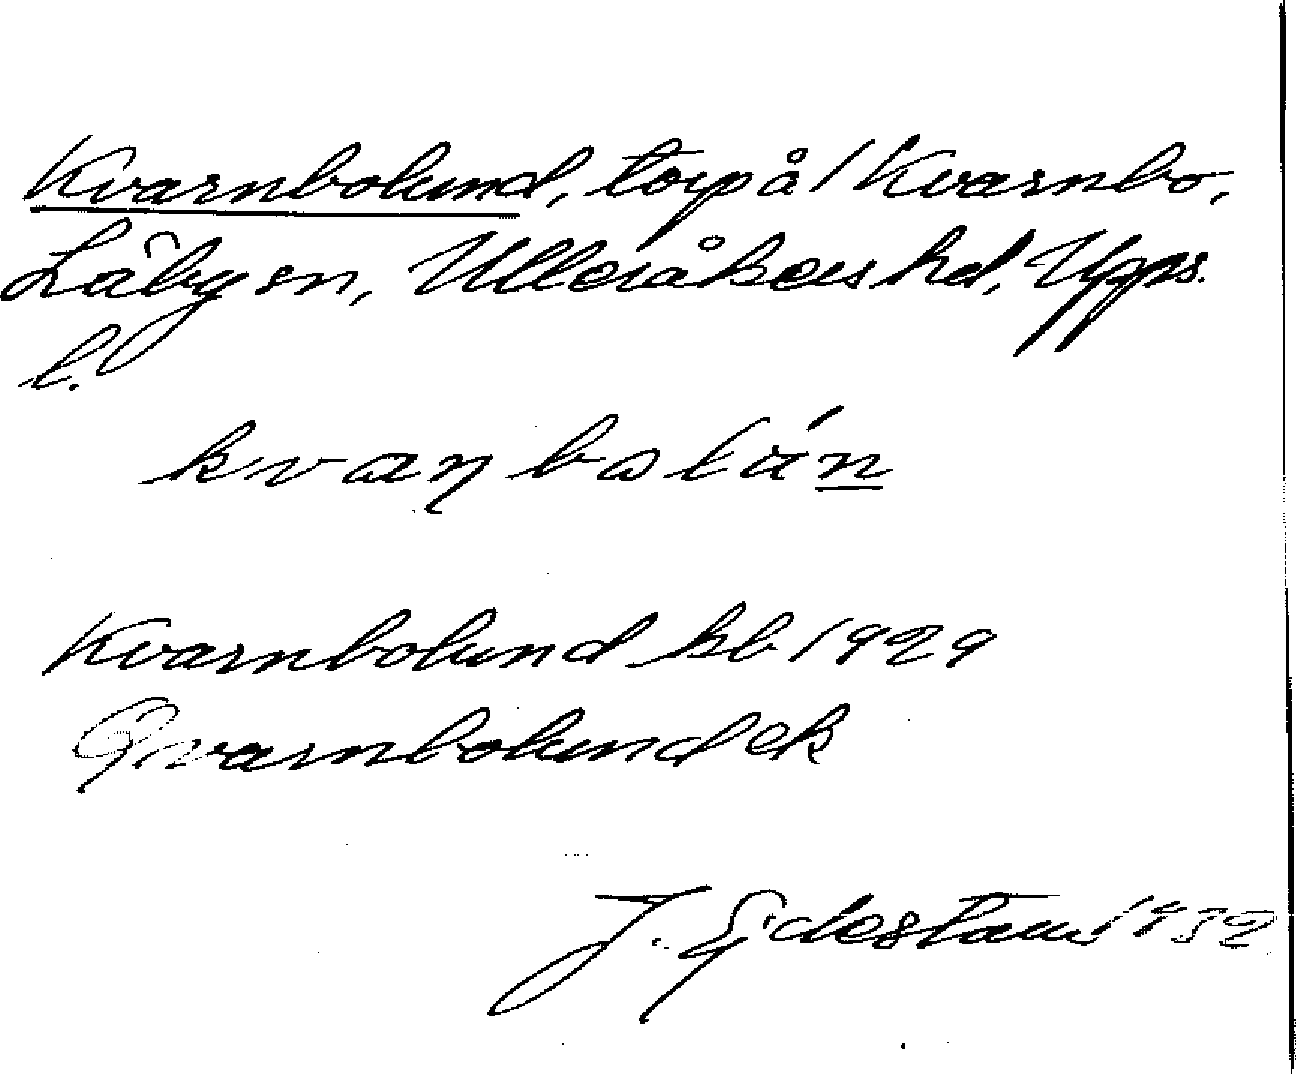 Kvarnbolund, torp å 1 Kvarnbo,
Läby sn, Ulleråkers hd, Upps.
l.
kvaɳbolún
Kvarnbolund kb 1929
Qvarnbolund ek
J. Ejdestam 1932